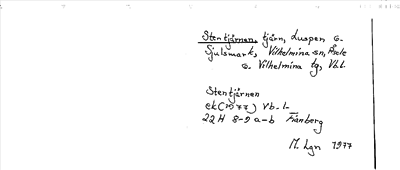 Stentjärnen, tjärn, Luspen o.
Sjulsmark, Vilhelmina sn, Åsele
o. Vilhelmina tg, Vb.l.
Stentjärnen
ek (1977) Vb. l.
22 H 8-9 a-b Fianberg
M. Lgn 1977